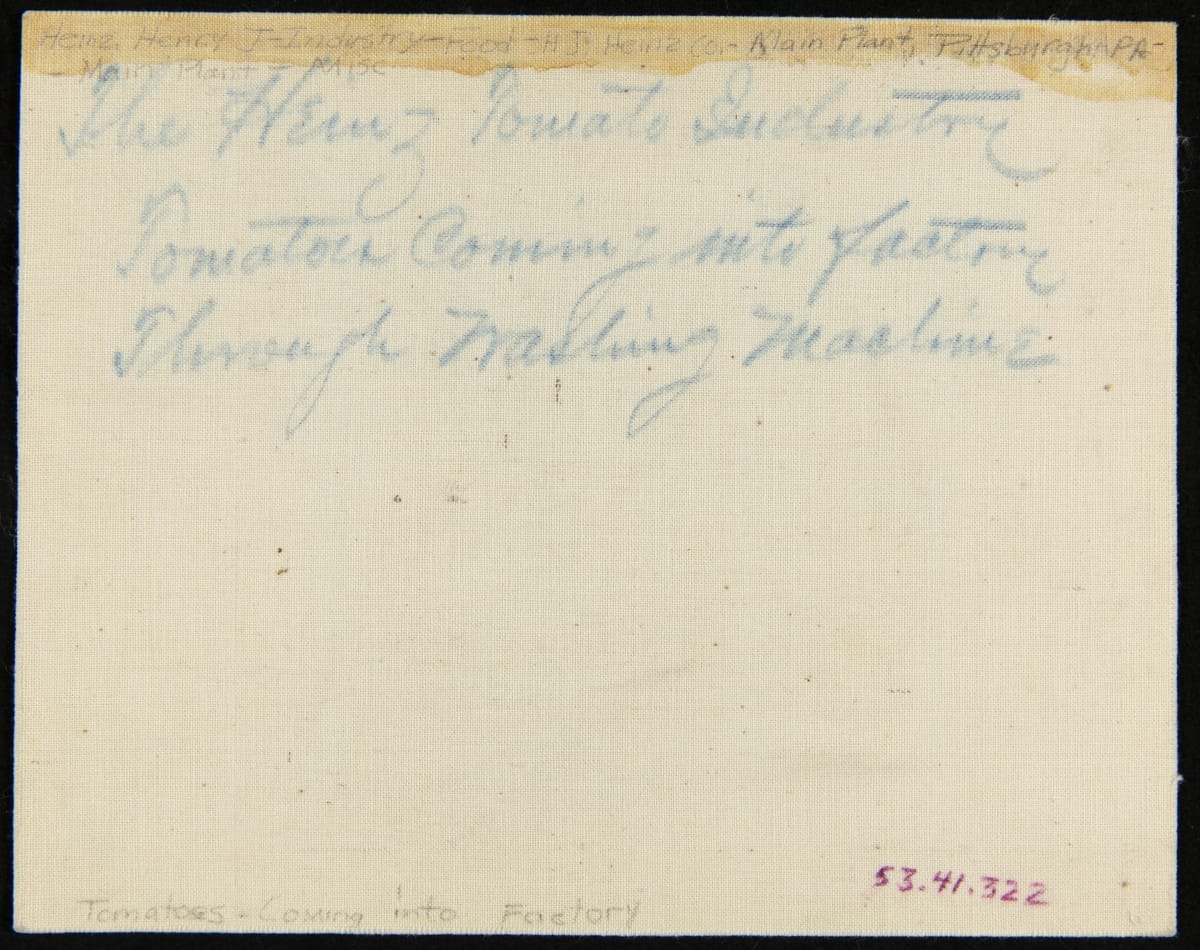 Heinz, Henry J-Industry-Food-H J Heinz Co.- Main Plant, Pittsburgh PA-
- Main Plant - Misc
The Heinz Tomato Industry
Tomatoes Coming into factory
Through Washing Machine
53.41.322
Tomatoes - Coming into Factory